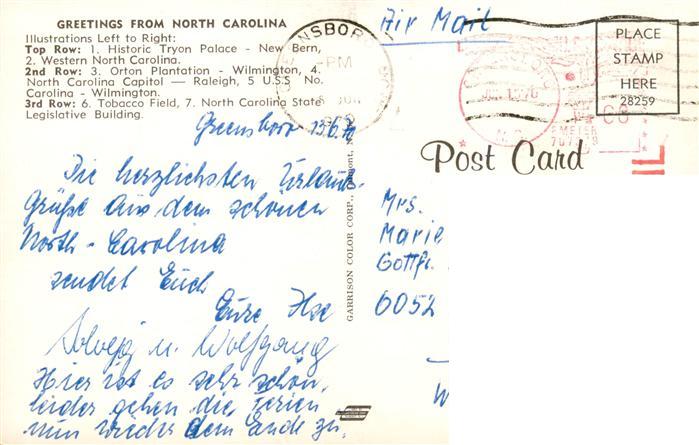 GREETINGS FROM NORTH CAROLINA
Illustrations Left to Right:
Top Row: 1. Historic Tryon Palace - New Bern,
2. Western North Carolina.
2nd Row: 3. Orton Plantation - Wilmington, 4.
North Carolina Capitol — Raleigh, 5 U.S.S. No.
Carolina - Wilmington.
3rd Row: 6. Tobacco Field, 7. North Carolina State
Legislative Building.
Air Mail
PM
PLACE
STAMP
HERE
28259
Post Card
GARRISON COLOR CORP.,
Greensboro
Die herzlichsten Urlaubs-
Grüße aus dem schönen
North-Carolina
sendet Euch
Eure Ilse
Solveig u. Wolfgang
Hier ist es sehr schön,
leider gehen die Ferien
nun wieder dem Ende zu.
Mrs.
Marie
Gottfr.
6052
W